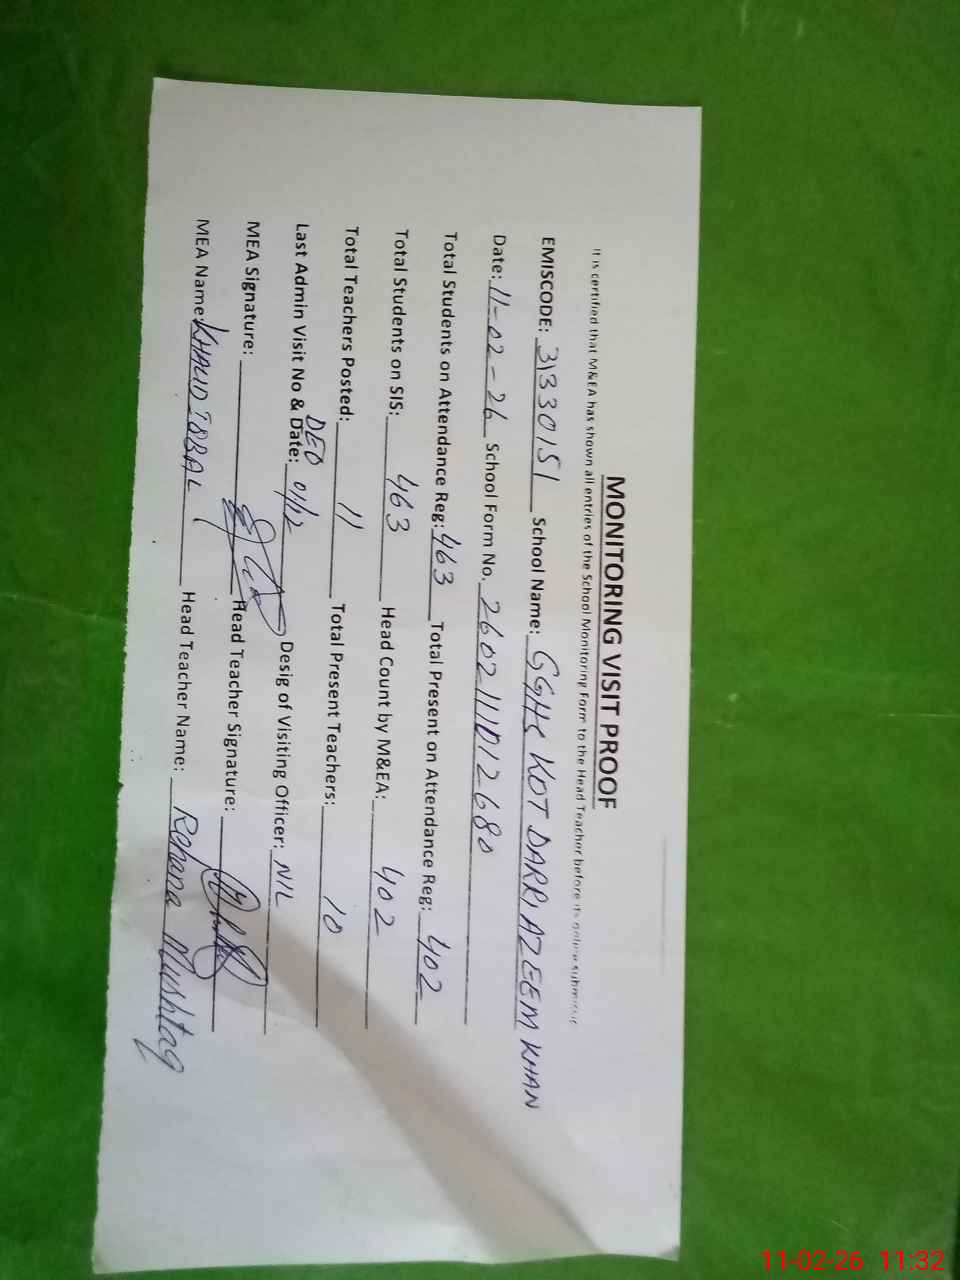 MONITORING VISIT PROOF
It is certified that M&EA has shown all entries of the School Monitoring Form to the Head Teacher before its online submissio
EMISCODE: 31330151 School Name: GGHS KOT DARRI AZEEM KHAN
Date: 11-02-26 School Form No. 2602111012680
Total Students on Attendance Reg: 463 Total Present on Attendance Reg: 402
Total Students on SIS: 463 Head Count by M&EA: 402
Total Teachers Posted: 11 Total Present Teachers: 10
Last Admin Visit No & Date: DEO 01/12 Desig of Visiting Officer: NIL
MEA Signature: Head Teacher Signature:
MEA Name: KHALID IQBAL Head Teacher Name: Rehana Mushtaq
11-02-26 11:32